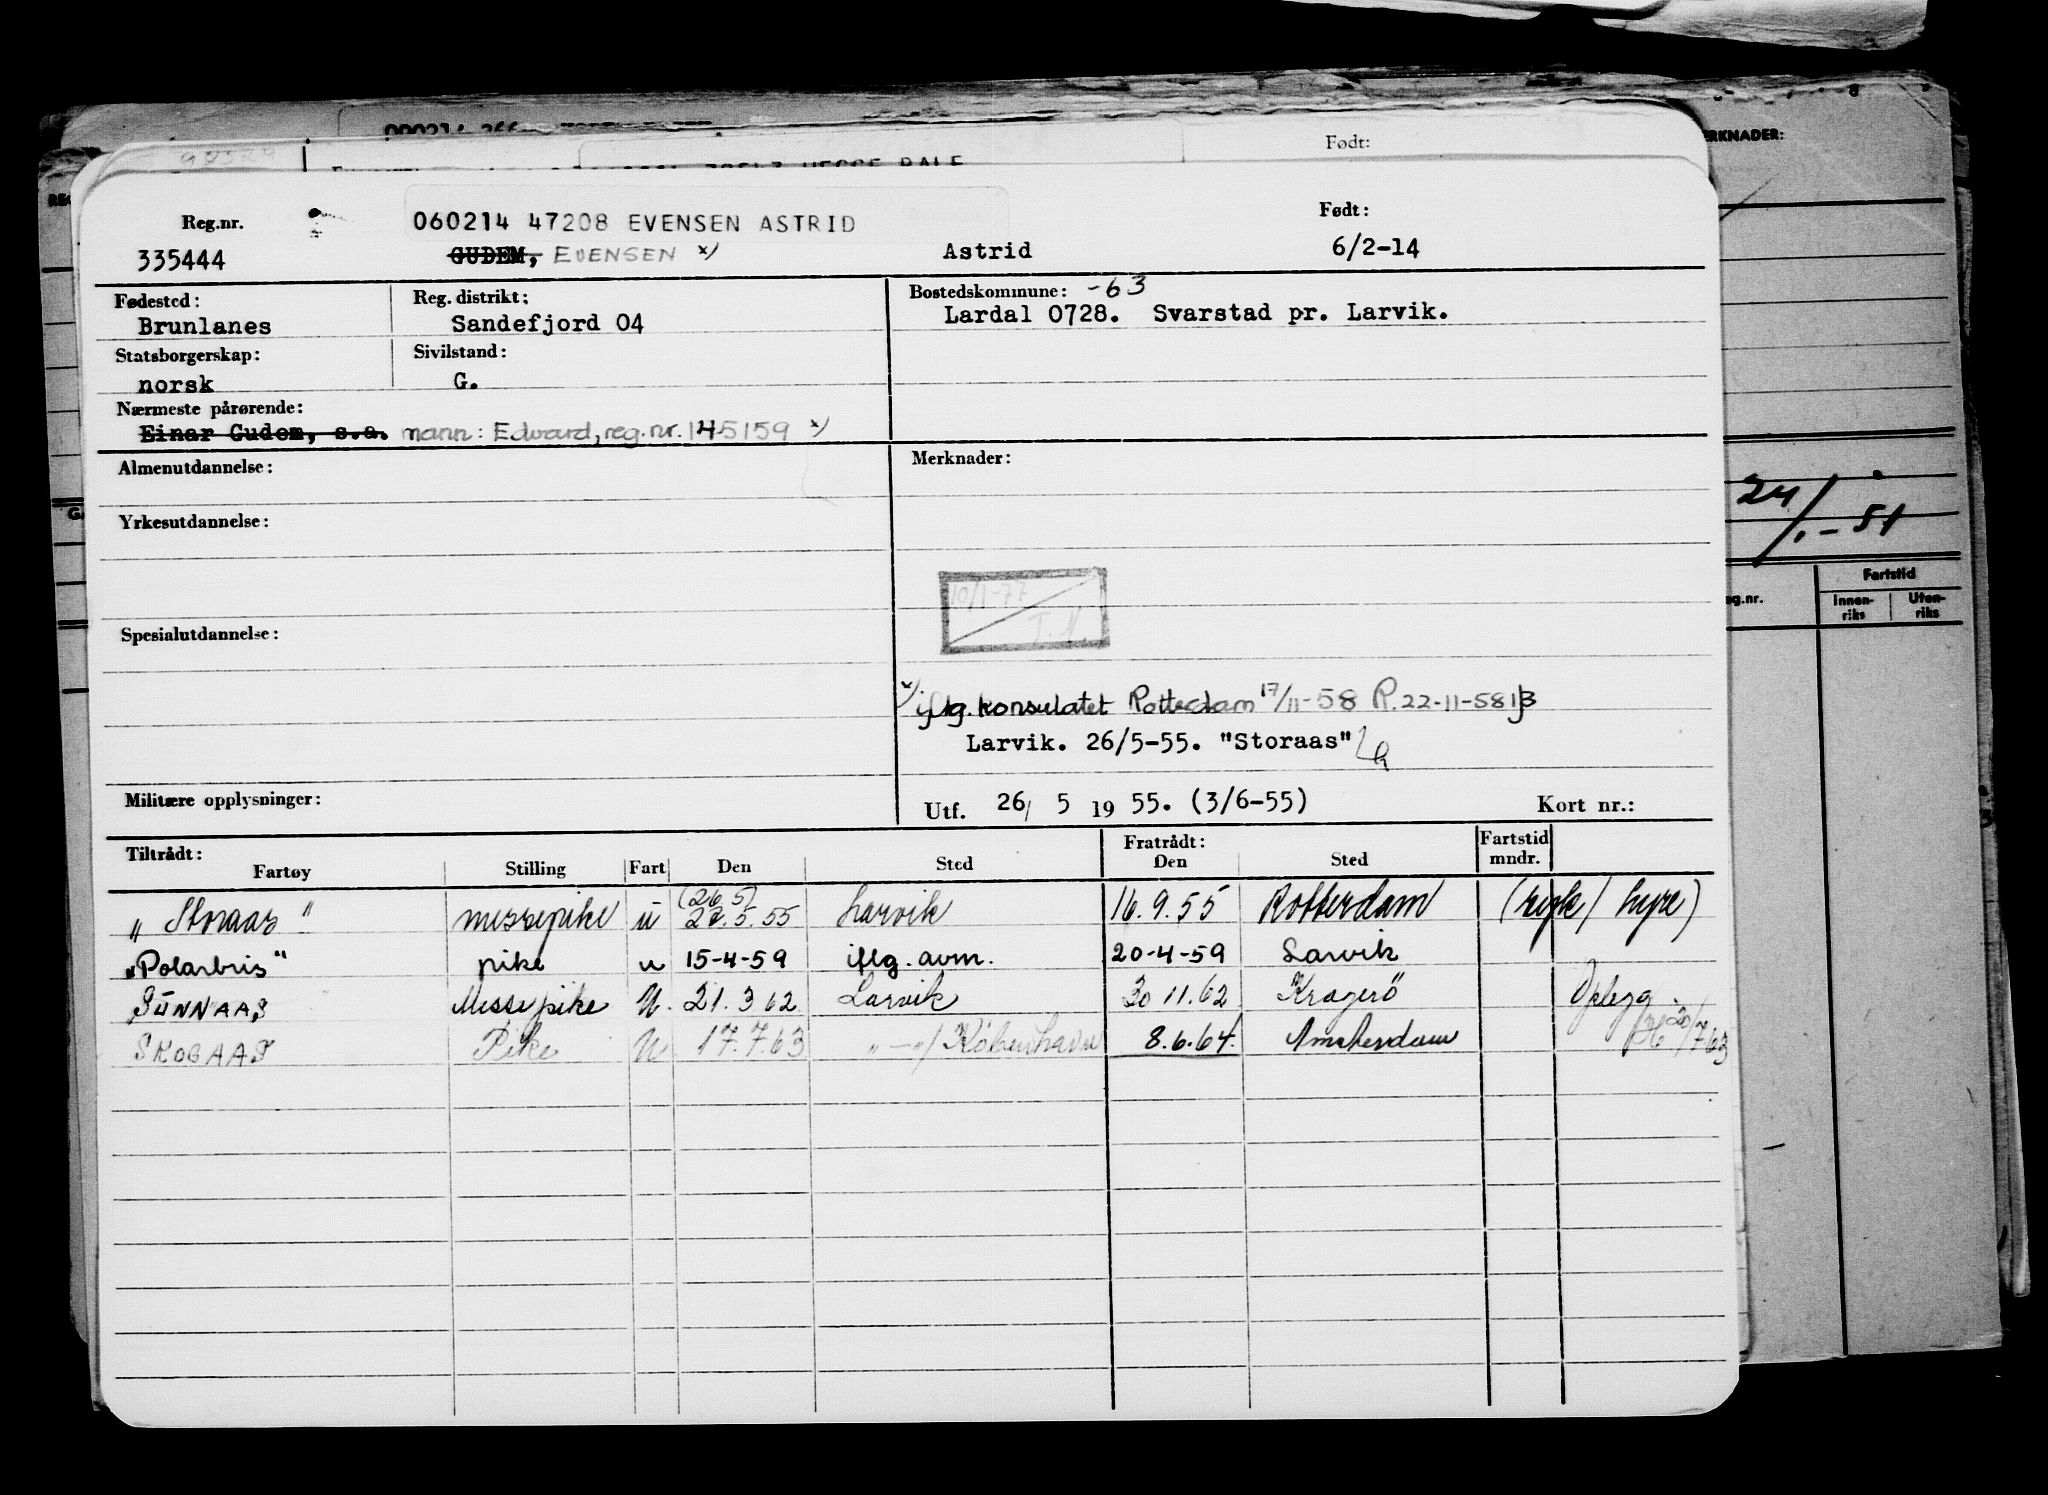 Født:
RKNADER:
Reg.nr.
060214 47208 EVENSEN ASTRID
Født:
335444
GUDEM, EVENSEN x)
Astrid
6/2-14
Fødested:
Reg. distrikt;
Bostedskommune: -63
Brunlanes
Sandefjord 04
Lardal 0728. Svarstad pr. Larvik.
Statsborgerskap:
Sivilstand:
norsk
G.
Nærmeste pårørende:
Einar Gudem, s.a. mann: Edvard, reg.nr. 145159 x)
Almenutdannelse:
Merknader:
24/1-51
Yrkesutdannelse:
10/1-77
Fartstid
Innen-riks
Uten-riks
Spesialutdannelse:
x) iflg. konsulatet Rotterdam 17/11-58 R.22-11-58
Larvik. 26/5-55. "Storaas"
Militære opplysninger:
Utf. 26/ 5 19 55. (3/6-55)
Kort nr.:
Tiltrådt:
Fratrådt:
Fartstid mndr.
Fartøy Stilling Fart Den Sted Den Sted
(26.5)
"Storaas" messepike u 27.5.55 Larvik 16.9.55 Rotterdam (rysk/ hyre)
"Polarbris" pike u 15-4-59 iflg. avm. 20-4-59 Larvik
SUNNAAS Messepike U. 21.3.62 Larvik 30 11.62 Kragerö Oplegg.
SKOGAAS Pike U 17.7.63 "-"/ København 8.6.64. Amsterdam 20/7 63